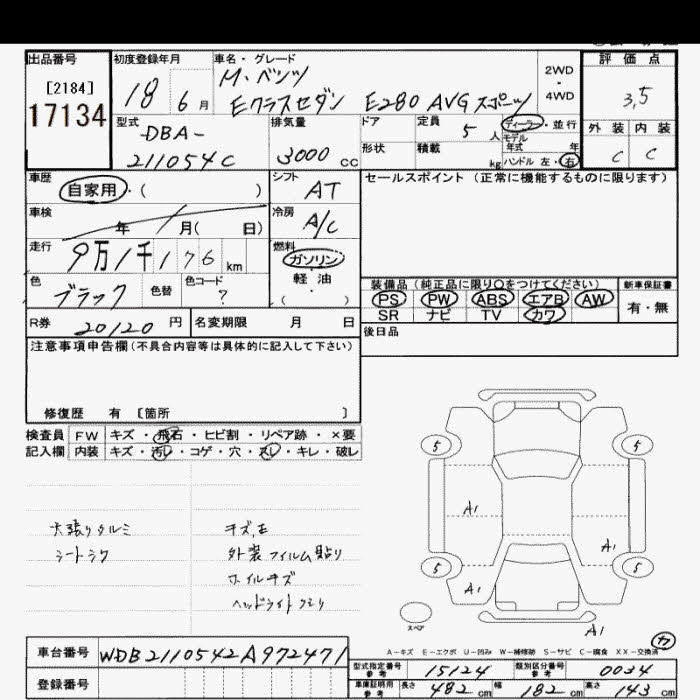 出品番号 初度登録年月 車名・グレード 評価点
[2184] 18 6月 M・ベンツ 2WD
17134 Eクラスセダン E280 AVG スポーツ ・4WD 3,5
型式 排気量 ドア 定員 5人 ディーラー・並行 外装 内装
DBA- モデル年式 年
211054C 3000cc 形状 積載 kg ハンドル 左・右 C C
車歴 自家用・( ) シフト AT セールスポイント (正常に機能するものに限ります)
車検 年 月( 日) 冷房 A/C
走行 9万1千176km 燃料 ガソリン・軽油・( )
色 ブラック 色替 色コード ? 装備品(純正品に限り○をつけてください) 新車保証書
PS PW ABS エアB AW 有・無
SR ナビ TV カワ
R券 20120円 名変期限 月 日 後日品
注意事項申告欄(不具合内容等は具体的に記入して下さい)
修復歴 有 [箇所 ]
検査員 FW キズ・飛石・ヒビ割・リペア跡・×要
記入欄 内装 キズ・汚レ・コゲ・穴・スレ・キレ・破レ
天張りタルミ キズ,E
シートシワ 外装フィルム貼り
ホイルキズ
ヘッドライトクモリ
5 5
A1
A1
5 5
A1
スペア
A1
A-キズ E-エクボ U-凹み W-補修跡 S-サビ C-腐食 XX-交換済
車台番号 WDB2110542A972471
登録番号
型式指定番号 参考 15124 類別区分番号 参考 0034
車庫証明用 参考 長さ 482cm 幅 182cm 高さ 143cm